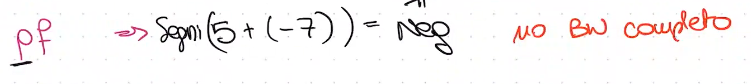 pf => Segni(5 + (-7)) = Neg no BW completo